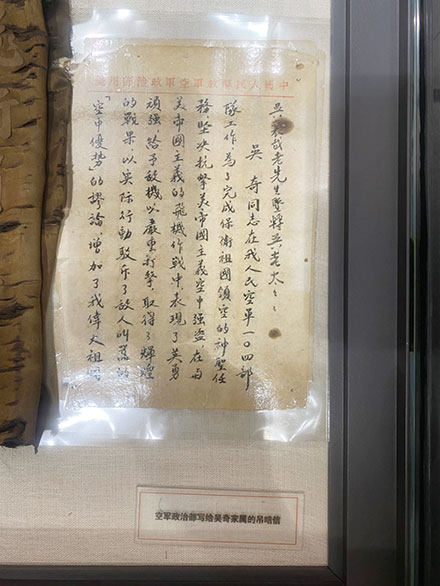 中國人民解放軍空軍政治部用箋
老先生暨吳老太々
吳奇同志在我人民空軍一〇四部
隊工作,為了完成保衛祖國領空的神聖任
務,堅决抗擊美帝國主義空中強盜,在与
美帝國主義的飛機作戰中,表現了英勇
頑強,給予敵機以嚴重打擊,取得了輝煌
的戰果,以实际行動駁斥了敵人叫囂的
「空中優势」的謬論,增加了我偉大祖國
空军政治部写给吴奇家属的吊唁信